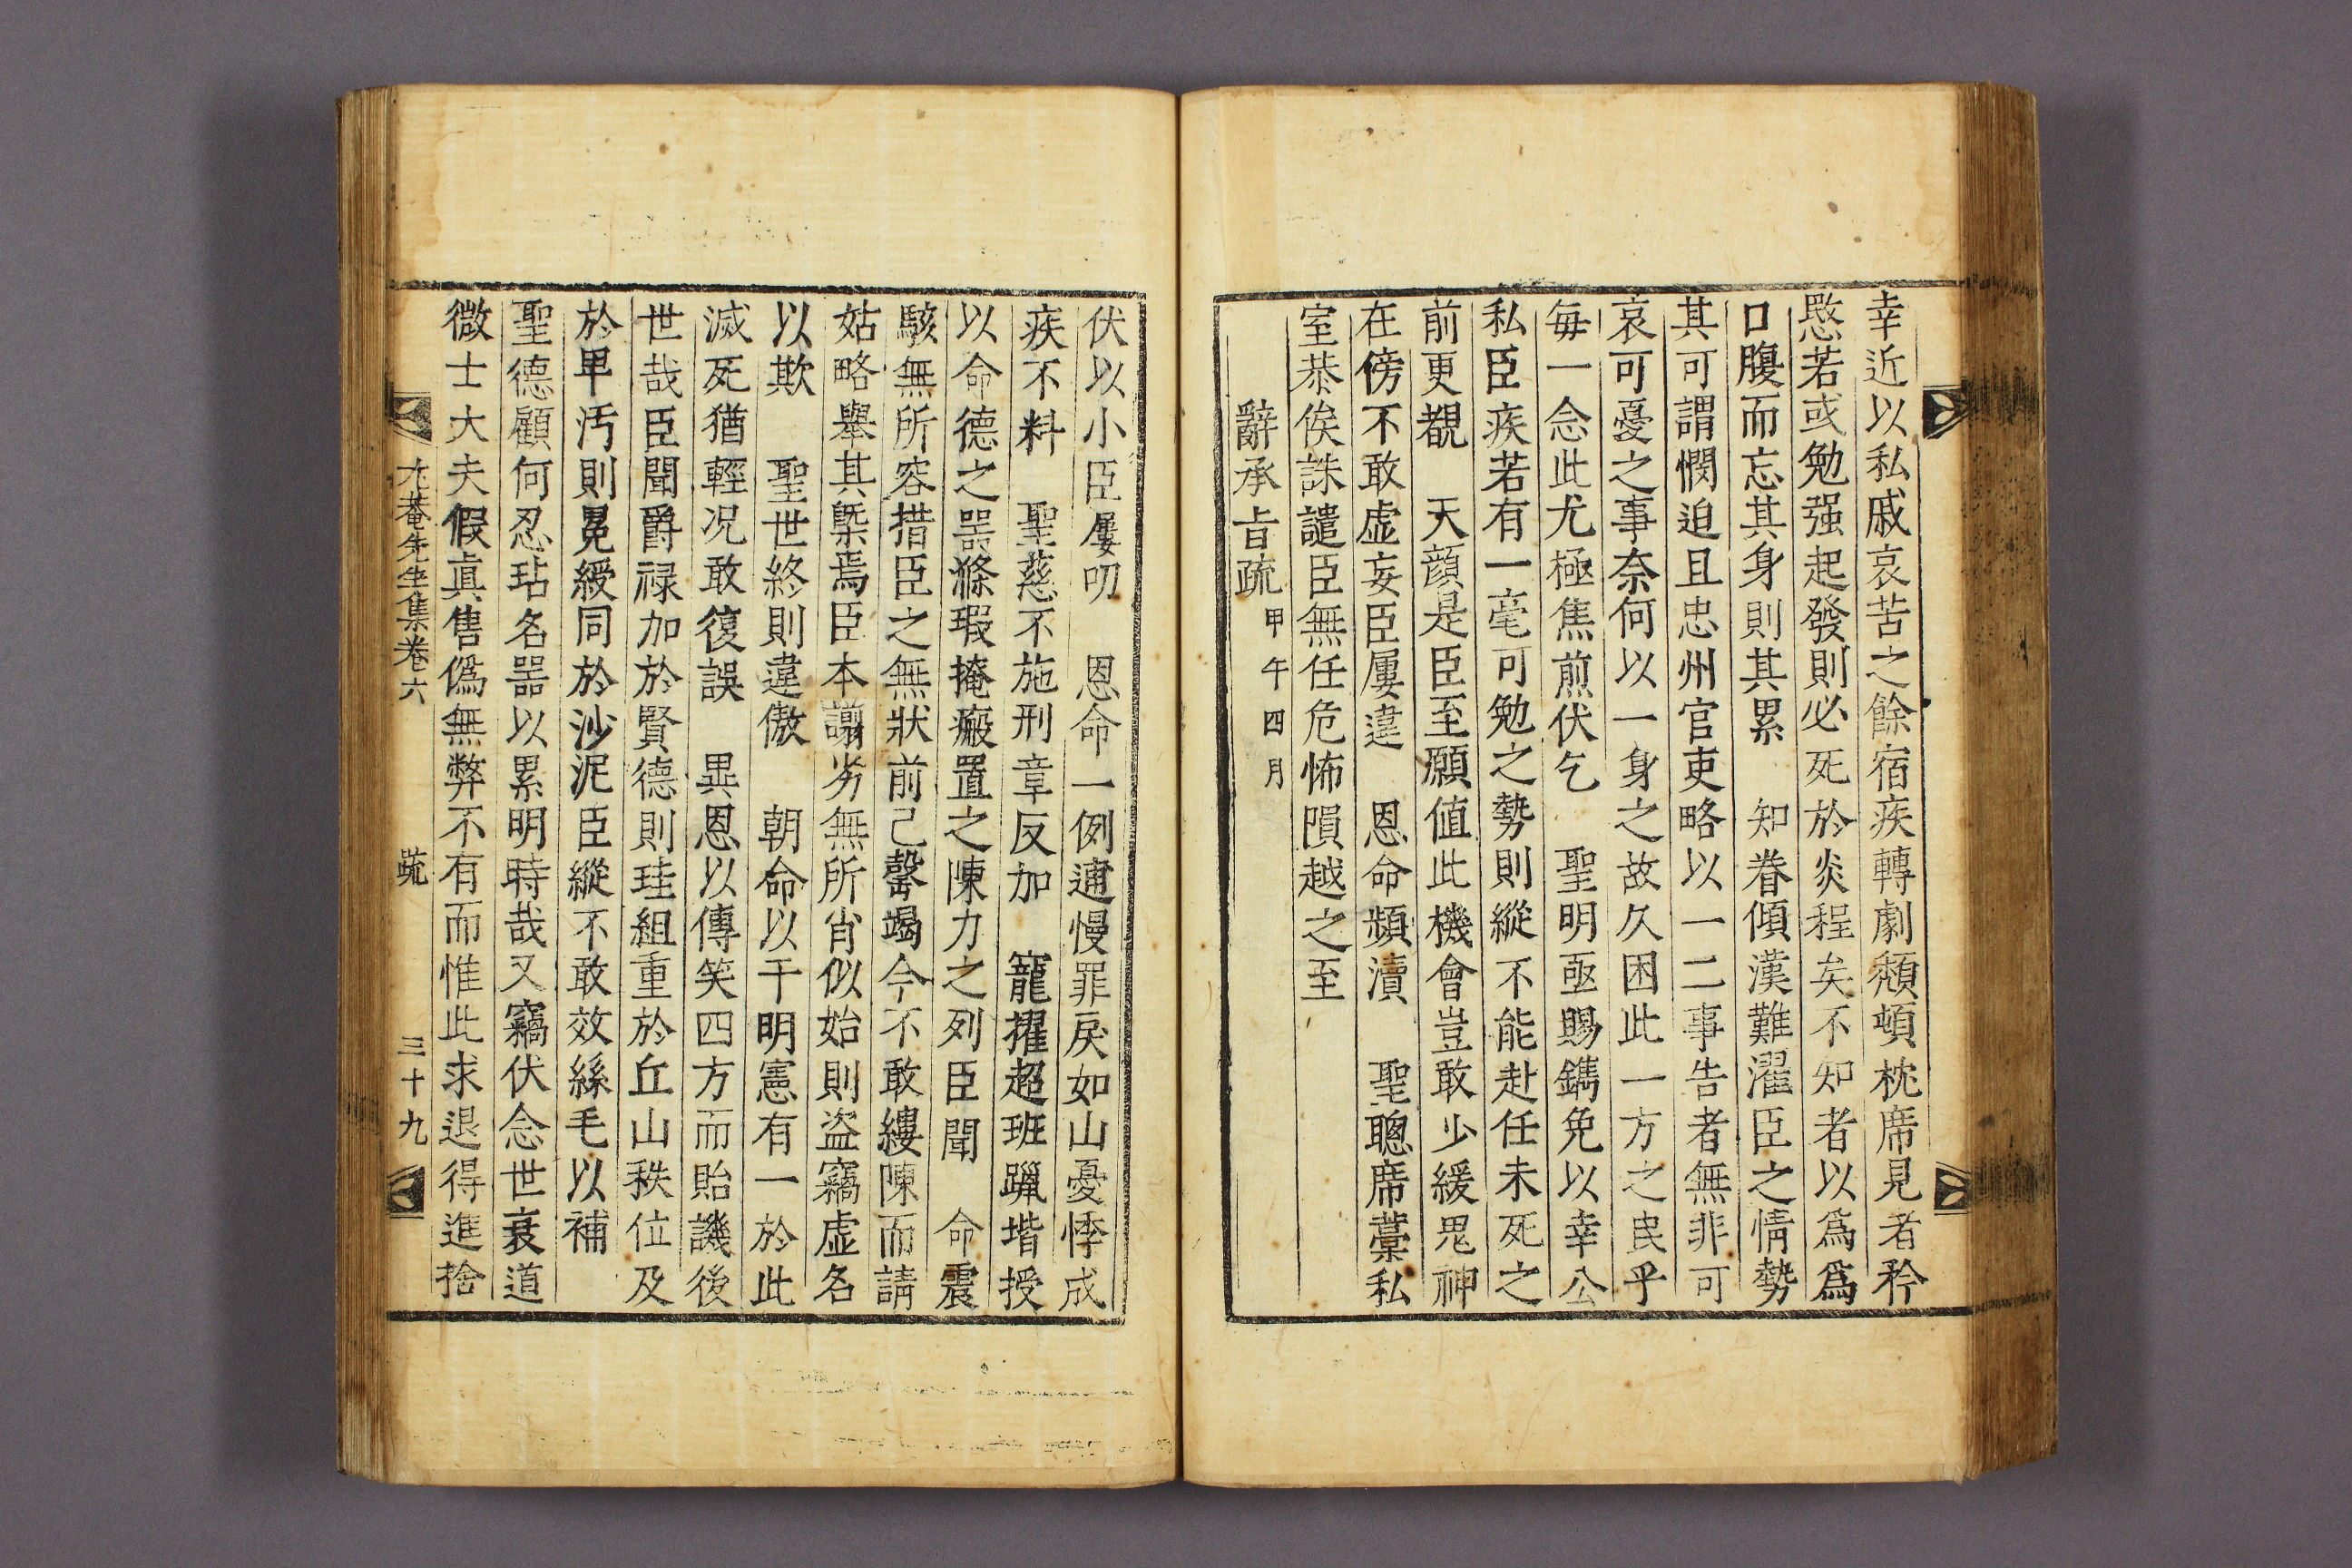 幸近以私戚哀苦之餘宿疾轉劇頹頓枕席見者矜
愍若或勉强起發則必死於炎程矣不知者以爲爲
口腹而忘其身則其累 知眷傾漢難濯臣之情勢
其可謂憫迫且忠州官吏略以一二事告者無非可
哀可憂之事奈何以一身之故久困此一方之民乎
每一念此尤極焦煎伏乞 聖明亟賜鐫免以幸公
私臣疾若有一毫可勉之勢則縱不能赴任未死之
前更覩 天顔是臣至願値此機會豈敢少緩鬼神
在傍不敢虛妄臣屢違 恩命頻瀆 聖聰席藁私
室恭俟誅譴臣無任危怖隕越之至
辭承旨疏 甲午四月
伏以小臣屢叨 恩命一例逋慢罪戾如山憂悸成
疾不料 聖慈不施刑章反加 寵擢超班躐堦授
以命德之器滌瑕掩瘢置之陳力之列臣聞 命震
駭無所容措臣之無狀前已罄竭今不敢縷陳而請
姑略擧其槩焉臣本謭劣無所肖似始則盜竊虛名
以欺 聖世終則違傲 朝命以干明憲有一於此
滅死猶輕况敢復誤 異恩以傳笑四方而貽譏後
世哉臣聞爵祿加於賢德則珪組重於丘山秩位及
於卑汚則冕綬同於沙泥臣縱不敢效絲毛以補
聖德顧何忍玷名器以累明時哉又竊伏念世衰道
微士大夫假眞售僞無弊不有而惟此求退得進捨
尤菴先生集卷六 疏 三十九